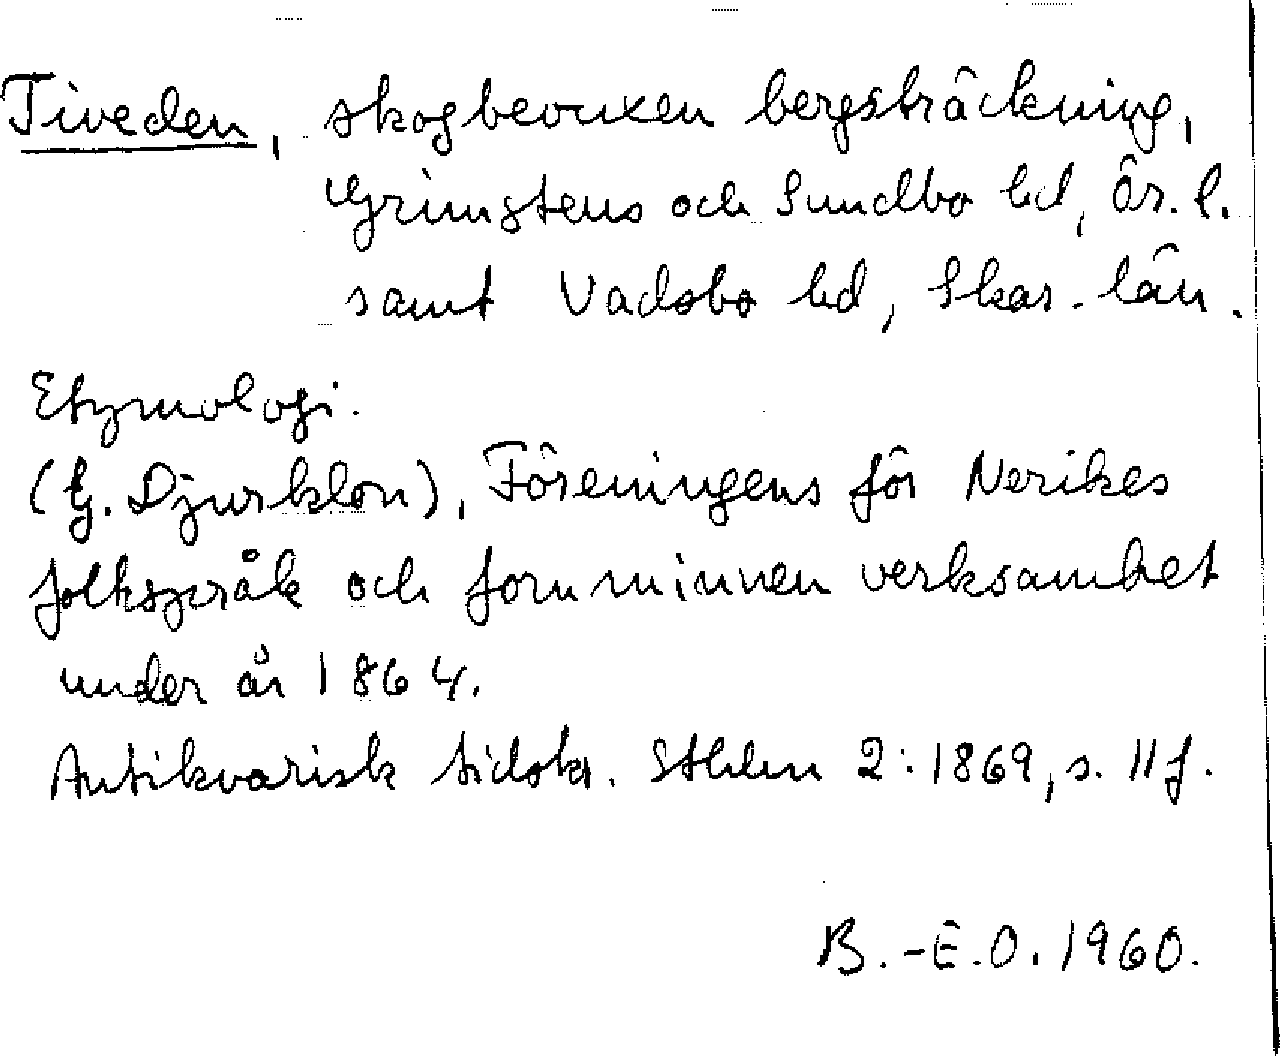 Tiveden, skogbevuxen bergsträckning,
Grimstens och Sundbo hd, Ör. l.
samt Vadsbo hd, Skar. län.
Etymologi.
(G. Djurklou), Föreningens för Nerikes
folkspråk och fornminnen verksamhet
under år 1864.
Antikvarisk tidskr. Sthlm 2:1869, s. 11f.
B.-E.O. 1960.